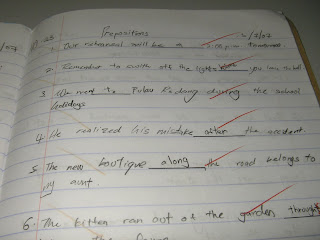 Prepositions
1. Our rehearsal will be a tomorrow.
2. Remember to switch off the lights when you leave the
3. We went to Pulau Redang during the school
holidays
4. He realized his mistake after the accident.
5. The new boutique along the road belongs to
my aunt.
6. The kitten ran out of the garden through